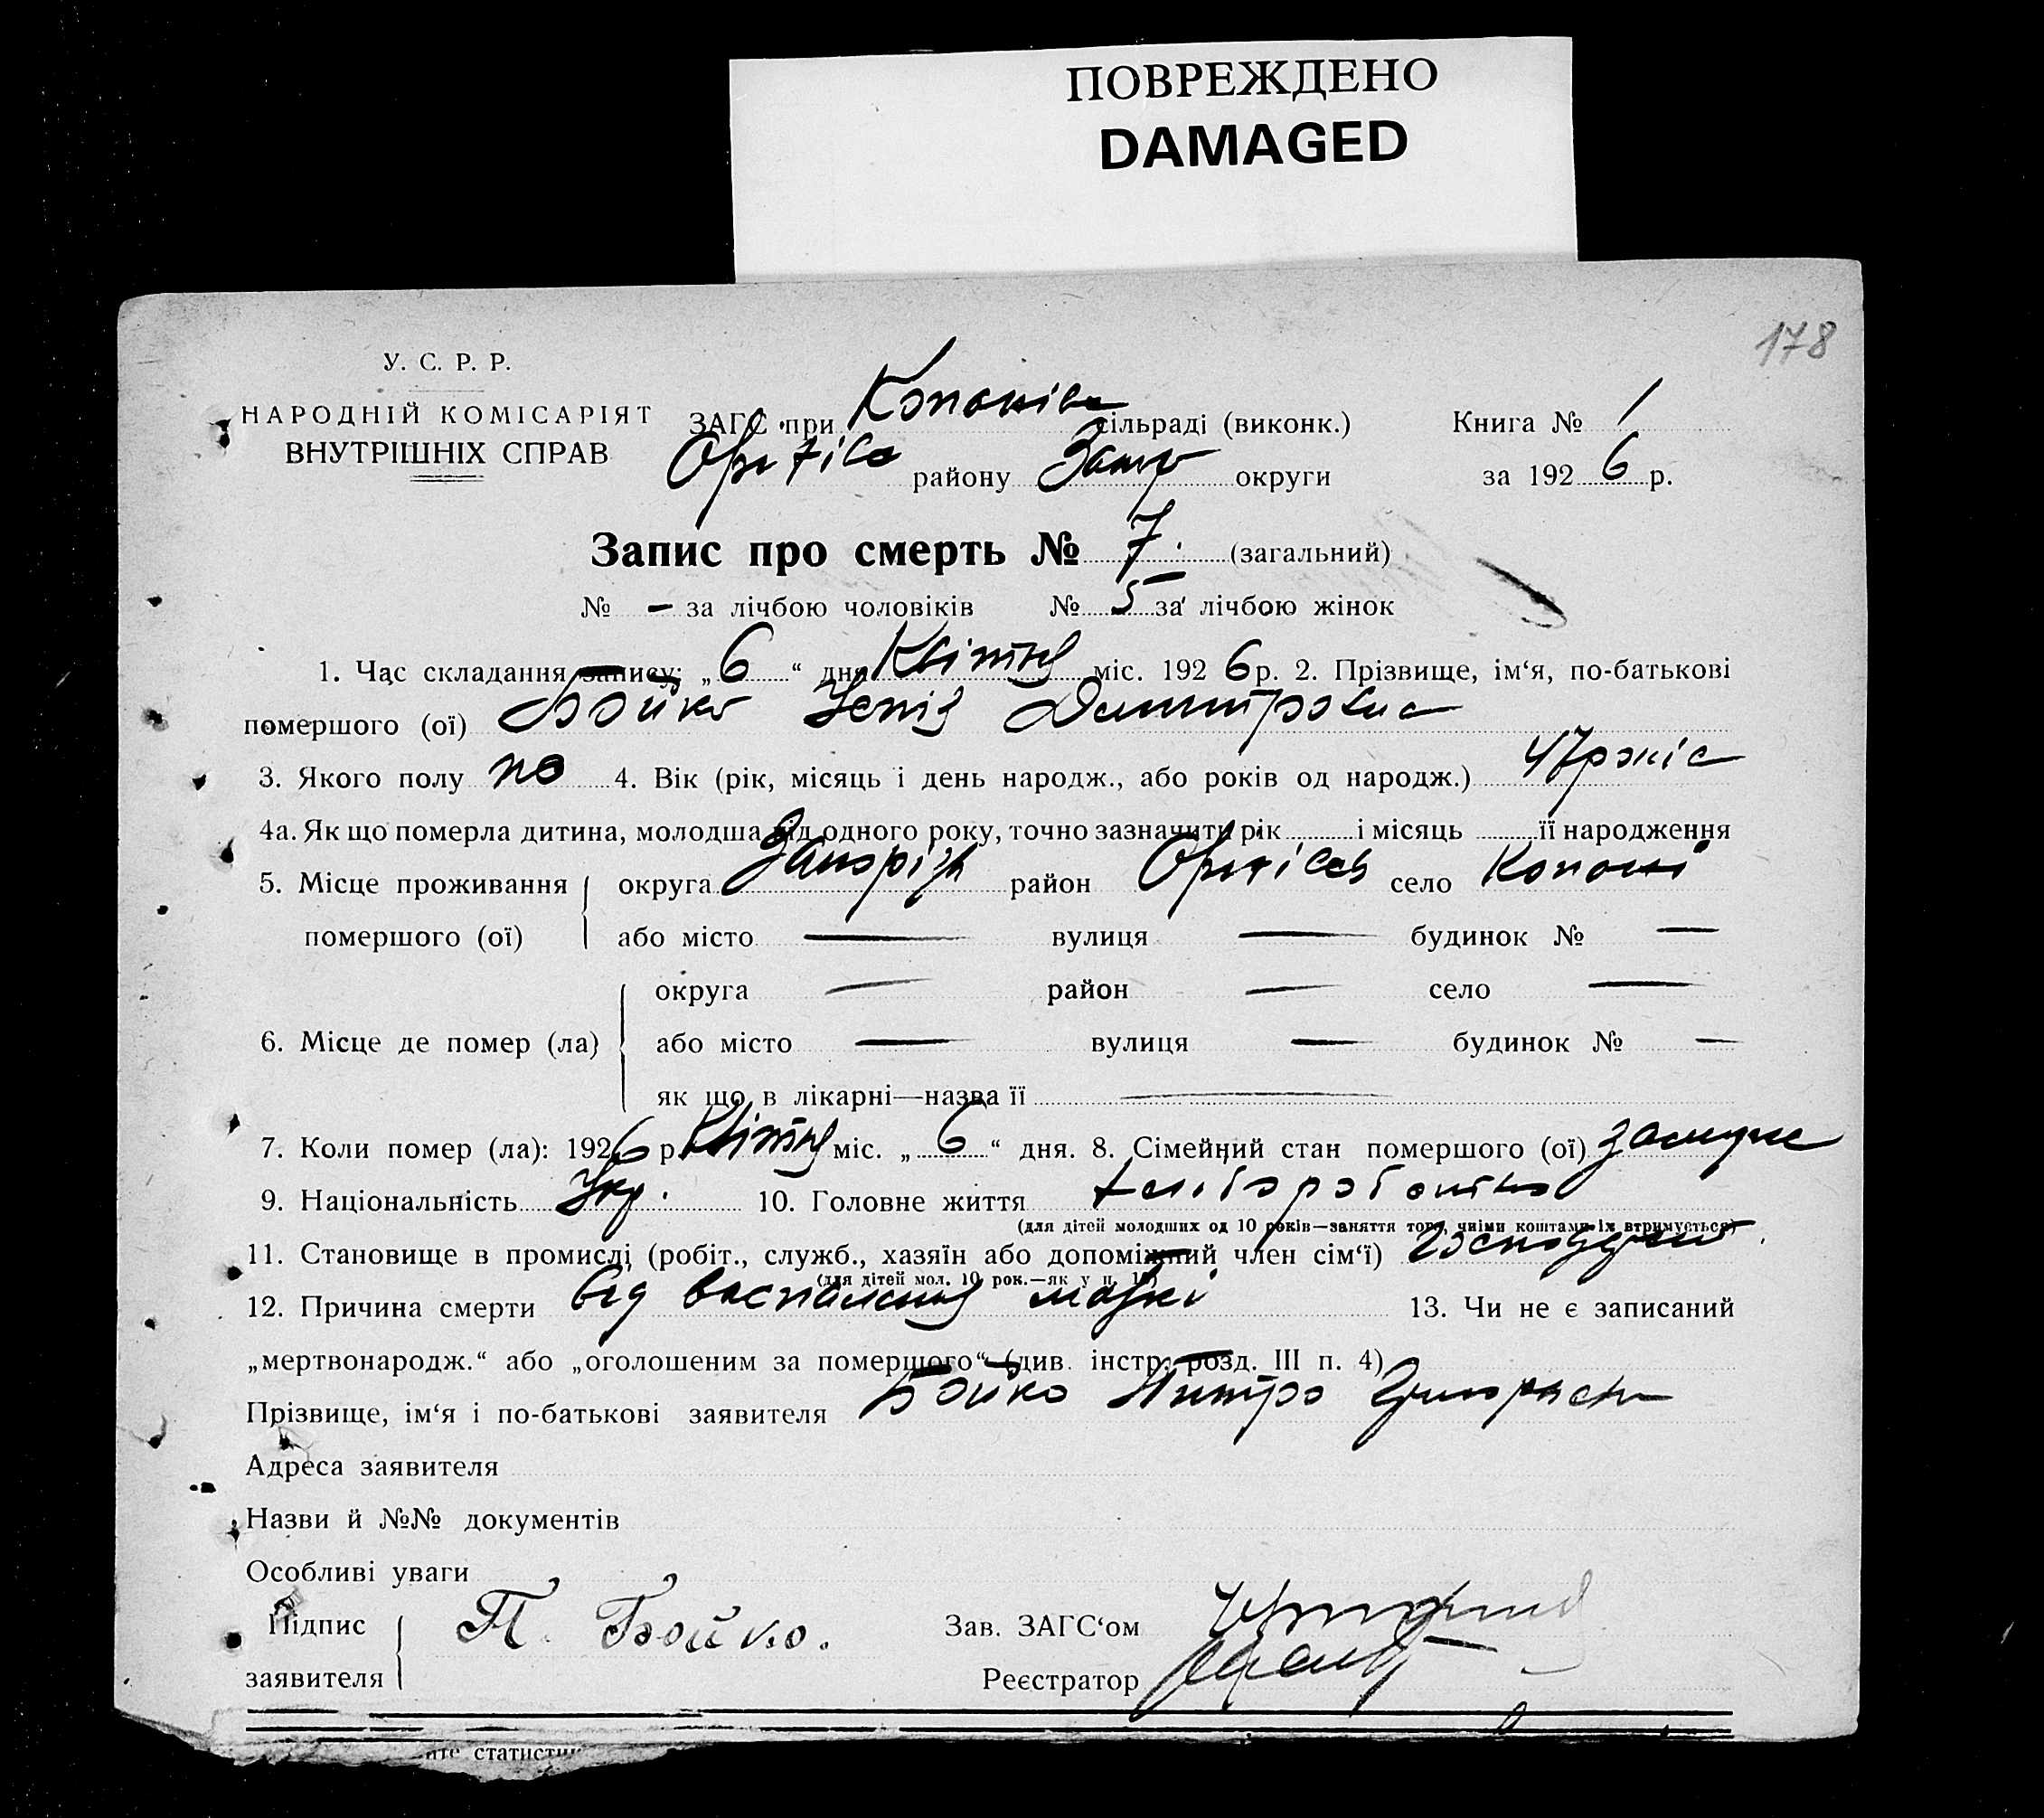 ПОВРЕЖДЕНО
DAMAGED
178
У. С. Р. Р.
НАРОДНІЙ КОМІСАРІЯТ
ВНУТРІШНІХ СПРАВ
ЗАГС при Копанів сільраді (виконк.) Книга № 1
Оріхів району Запор округи за 1926 р.
Запис про смерть № 7. (загальний)
№ — за лічбою чоловіків № 5 за лічбою жінок
1. Час складання запису: „6“ дня Квітня міс. 1926 р. 2. Прізвище, ім‘я, по-батькові
помершого (ої) Бойко Дмитровна
3. Якого полу 4. Вік (рік, місяць і день народж., або років од народж.) 47 років
4а. Як що померла дитина, молодша від одного року, точно зазначить рік і місяць її народження
5. Місце проживання округа Запоріж район Оріхів село Копані
помершого (ої) або місто — вулиця — будинок № —
округа — район — село —
6. Місце де помер (ла) або місто — вулиця — будинок № —
як що в лікарні—назва її —
7. Коли помер (ла): 1926 р. Квітня міс. „6“ дня. 8. Сімейний стан помершого (ої) замужня
9. Національність Укр. 10. Головне життя хліборобство
(для дітей молодших од 10 років—заняття того, чиїми коштами їх втримується)
11. Становище в промислі (робіт., служб., хазяїн або допоміжний член сім‘ї)
(для дітей мол. 10 рок.—як у п. 10)
12. Причина смерти від воспаления 13. Чи не є записаний
„мертвонародж.“ або „оголошеним за помершого“ (див. інстр. розд. III п. 4)
Прізвище, ім‘я і по-батькові заявителя Бойко
Адреса заявителя
Назви й №№ документів
Особливі уваги
Підпис П. Бойко. Зав. ЗАГС‘ом
заявителя Реєстратор
статисти